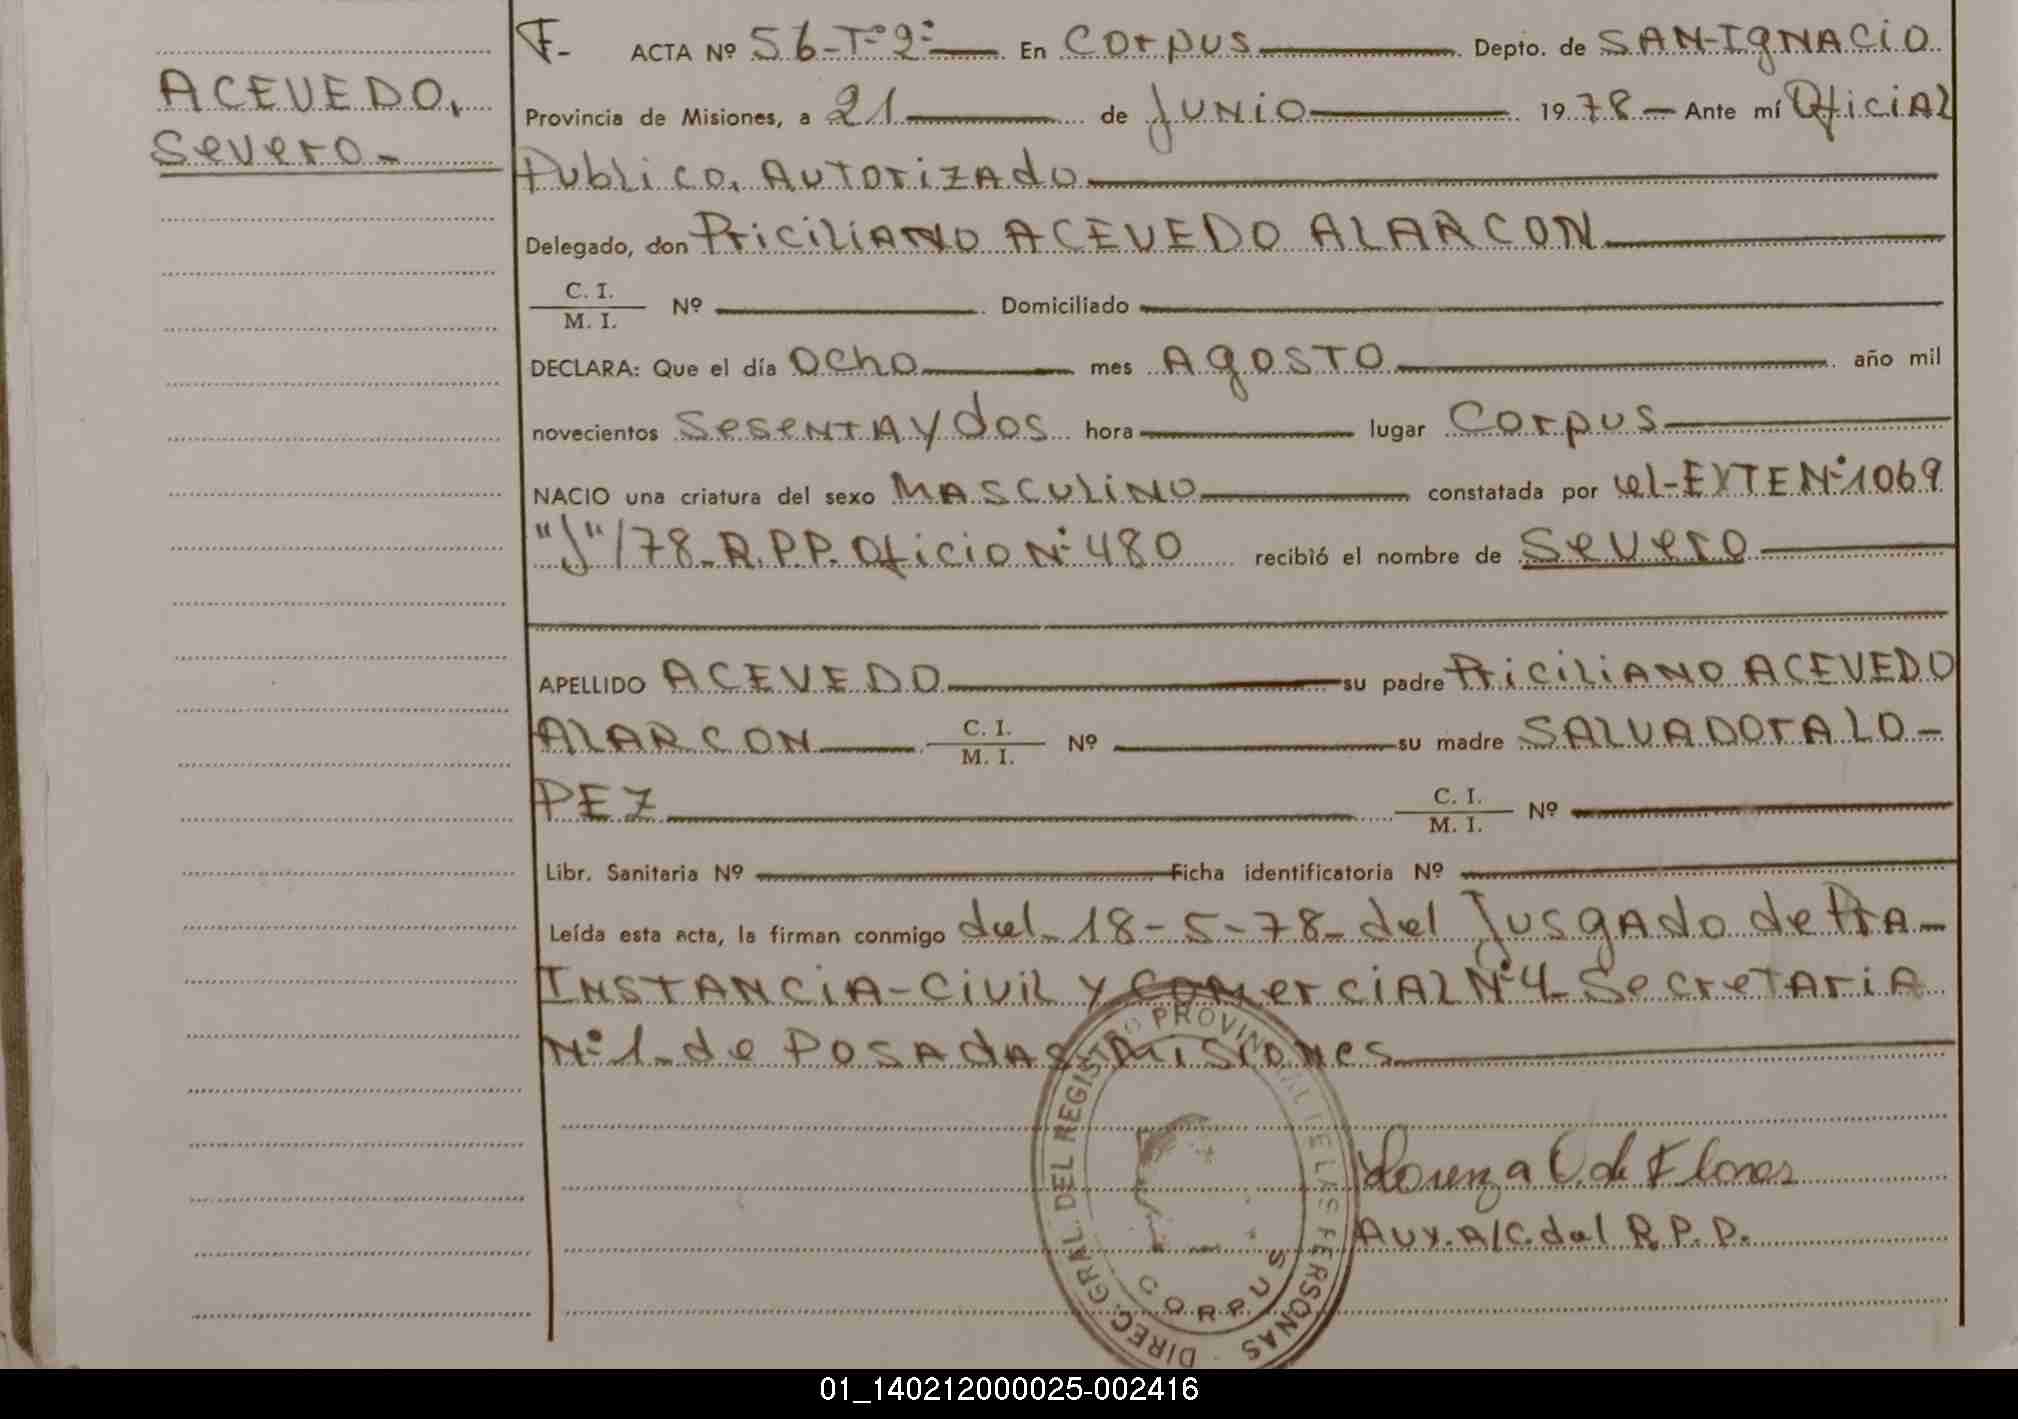 ACEVEDO,
Severo-
F- ACTA Nº 56-Tº2º En Corpus Depto. de SAN-IgNACiO
Provincia de Misiones, a 21 de JUNiO 1978- Ante mí OficiAl
Publico. AUTOrizAdo
Delegado, don PriciliANO ACEVEDO ALARCON
C. I.
M. I. Nº Domiciliado
DECLARA: Que el día Ocho mes AgOSTO año mil
novecientos SesentA y dos hora lugar Corpus
NACIO una criatura del sexo MASCULiNO constatada por el-EXTE Nº1069
"J"/78-R.P.P. Oficio Nº480 recibió el nombre de Severo
APELLIDO ACEVEDO su padre PriciliANO ACEVEDO
ALARCON C. I. M. I. Nº su madre SALVADOrA LO-
PEZ C. I. M. I. Nº
Libr. Sanitaria Nº Ficha identificatoria Nº
Leída esta acta, la firman conmigo del-18-5-78-del JusgAdo de PrA-
INSTANCiA-Civil y ComerciAl Nº4-SecreTAriA
Nº1-de POSAdAS-MISIONes
DIREC. GRAL. DEL REGISTRO PROVINCIAL DE LAS PERSONAS -
CORPUS
Lorenza O. de Flores
AUX. A/C. del R.P.P.
01_140212000025-002416